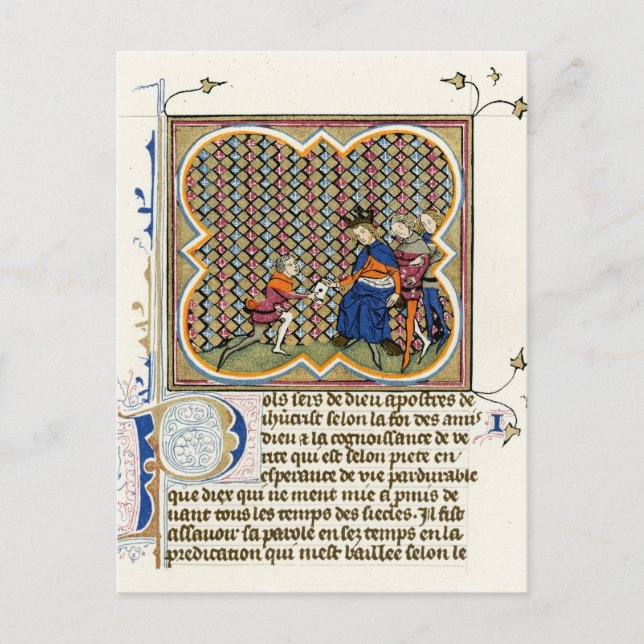 Pols sers de dieu apostres de
ihūcrist selon la foi des amis
dieu & la cognoissance de ve
rite qui est selon piete en
esperance de vie pardurable
que diex qui ne ment mie a pmis de
uant tous les temps des siecles. Il fist
assauoir sa parole en sez temps en la
predication qui mest baillee selon le
I